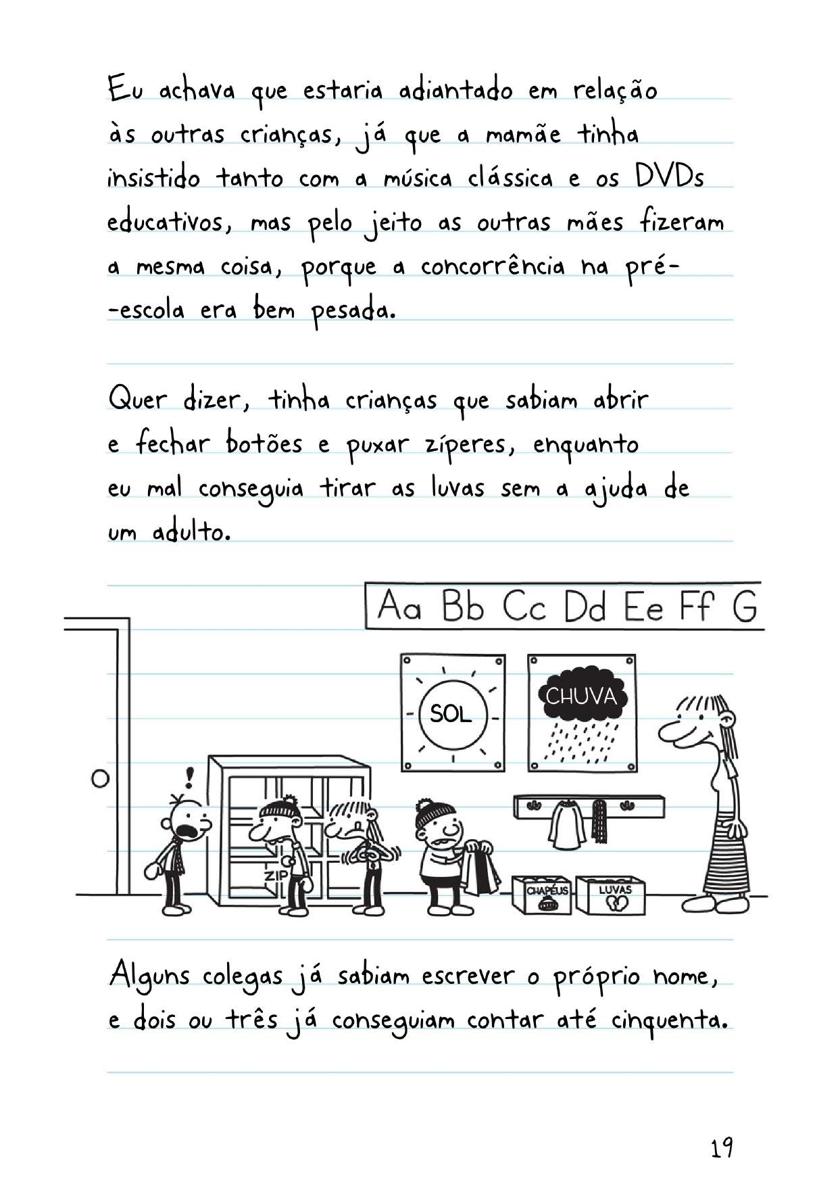 Eu achava que estaria adiantado em relação
às outras crianças, já que a mamãe tinha
insistido tanto com a música clássica e os DVDs
educativos, mas pelo jeito as outras mães fizeram
a mesma coisa, porque a concorrência na pré-
-escola era bem pesada.
Quer dizer, tinha crianças que sabiam abrir
e fechar botões e puxar zíperes, enquanto
eu mal conseguia tirar as luvas sem a ajuda de
um adulto.
Aa Bb Cc Dd Ee Ff G
SOL
CHUVA
!
ZIP
CHAPÉUS
LUVAS
Alguns colegas já sabiam escrever o próprio nome,
e dois ou três já conseguiam contar até cinquenta.
19